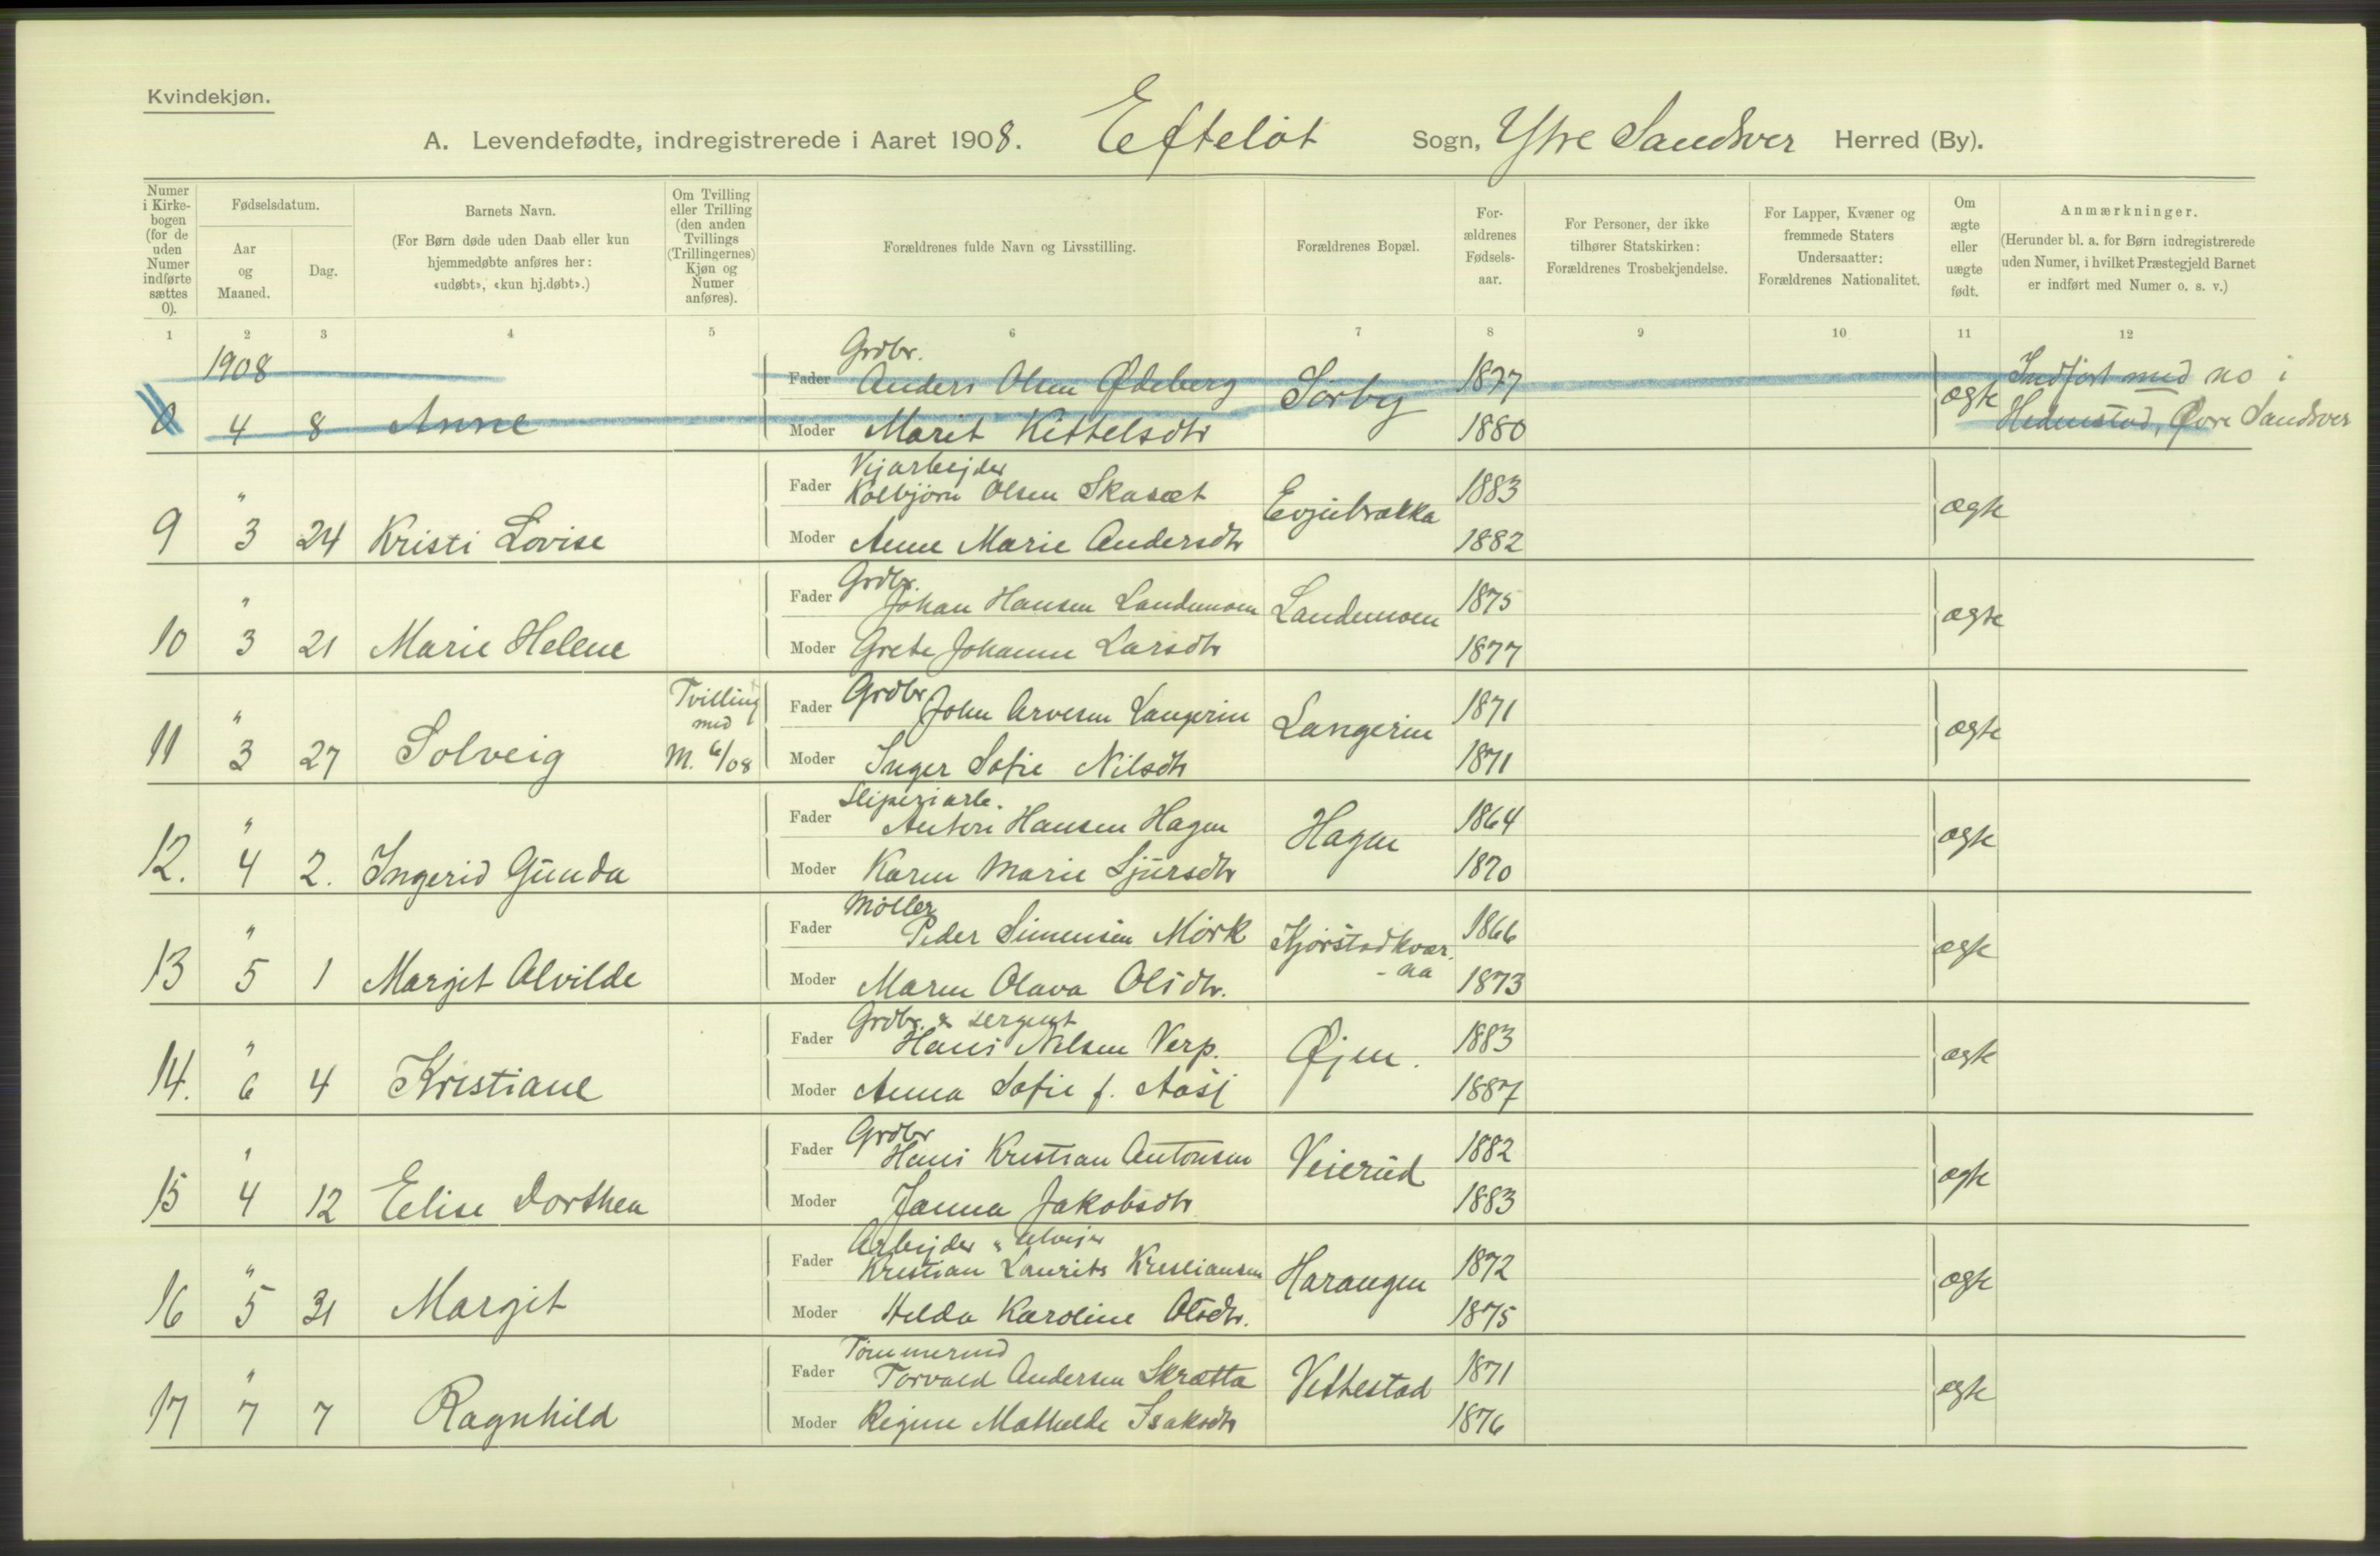 Kvindekjøn.
A. Levendefødte, indregistrerede i Aaret 1908. Efteløt Sogn, Ytre Sandsver Herred (By).
Numer i Kirkebogen (for de uden Numer indførte sættes 0).
Fødselsdatum.
Aar og Maaned.
Dag.
Barnets Navn.
(For Børn døde uden Daab eller kun hjemmedøbte anføres her: «udøbt», «kun hj.døbt».)
Om Tvilling eller Trilling (den anden Tvillings (Trillingernes) Kjøn og Numer anføres).
Forældrenes fulde Navn og Livsstilling.
Forældrenes Bopæl.
Forældrenes Fødselsaar.
For Personer, der ikke tilhører Statskirken: Forældrenes Trosbekjendelse.
For Lapper, Kvæner og fremmede Staters Undersaatter: Forældrenes Nationalitet.
Om ægte eller uægte født.
Anmærkninger.
(Herunder bl. a. for Børn indregistrerede uden Numer, i hvilket Præstegjeld Barnet er indført med Numer o. s. v.)
1 2 3 4 5 6 7 8 9 10 11 12
1908
Grdbr.
Fader Anders Olsen Ødeberg Sørby 1877 ægte Indført med no i
0 4 8 Anne Moder Marit Kittelsdtr 1880 Hedenstad, Øvre Sandsver
Vejarbejder
" Fader Kolbjørn Olsen Skasæt Evjubrækka 1883 ægte
9 3 24 Kristi Lovise Moder Anne Marie Andersdtr 1882
Grdbr.
" Fader Johan Hansen Landemoen Landemoen 1875 ægte
10 3 21 Marie Helene Moder Grete Johanne Larsdtr 1877
Tvilling med M. 6/08
" Fader Grdbr John Arvesen Langerin Langerin 1871 ægte
11 3 27 Solveig Moder Inger Sofie Nilsdtr 1871
Sliperiarb.
" Fader Anton Hansen Hagen Hagen 1864 ægte
12. 4 2. Ingerid Gunda Moder Karen Marie Sjursdtr 1870
Møller
" Fader Peder Simensen Mørk Kjørstadkvær- 1866 ægte
-aa
13 5 1 Margit Alvilde Moder Maren Olava Olsdtr. 1873
Grdbr. & sergent
" Fader Hans Nilsen Verp. Øjen. 1883 ægte
14. 6 4 Kristiane Moder Anna Sofie f. Aasl 1887
Grdbr
" Fader Hans Kristian Antonsen Veierud 1882 ægte
15 4 12 Elise Dorthea Moder Janna Jakobsdtr 1883
Arbejder & selvejer
" Fader Kristian Laurits Kristiansen Harangen 1872 ægte
16 5 31 Margit Moder Helda Karoline Olsdtr. 1875
Tømmermd
" Fader Torvald Andersen Skrætta Vettestad 1871 ægte
17 7 7 Ragnhild Moder Regine Mathilde Isaksdtr 1876